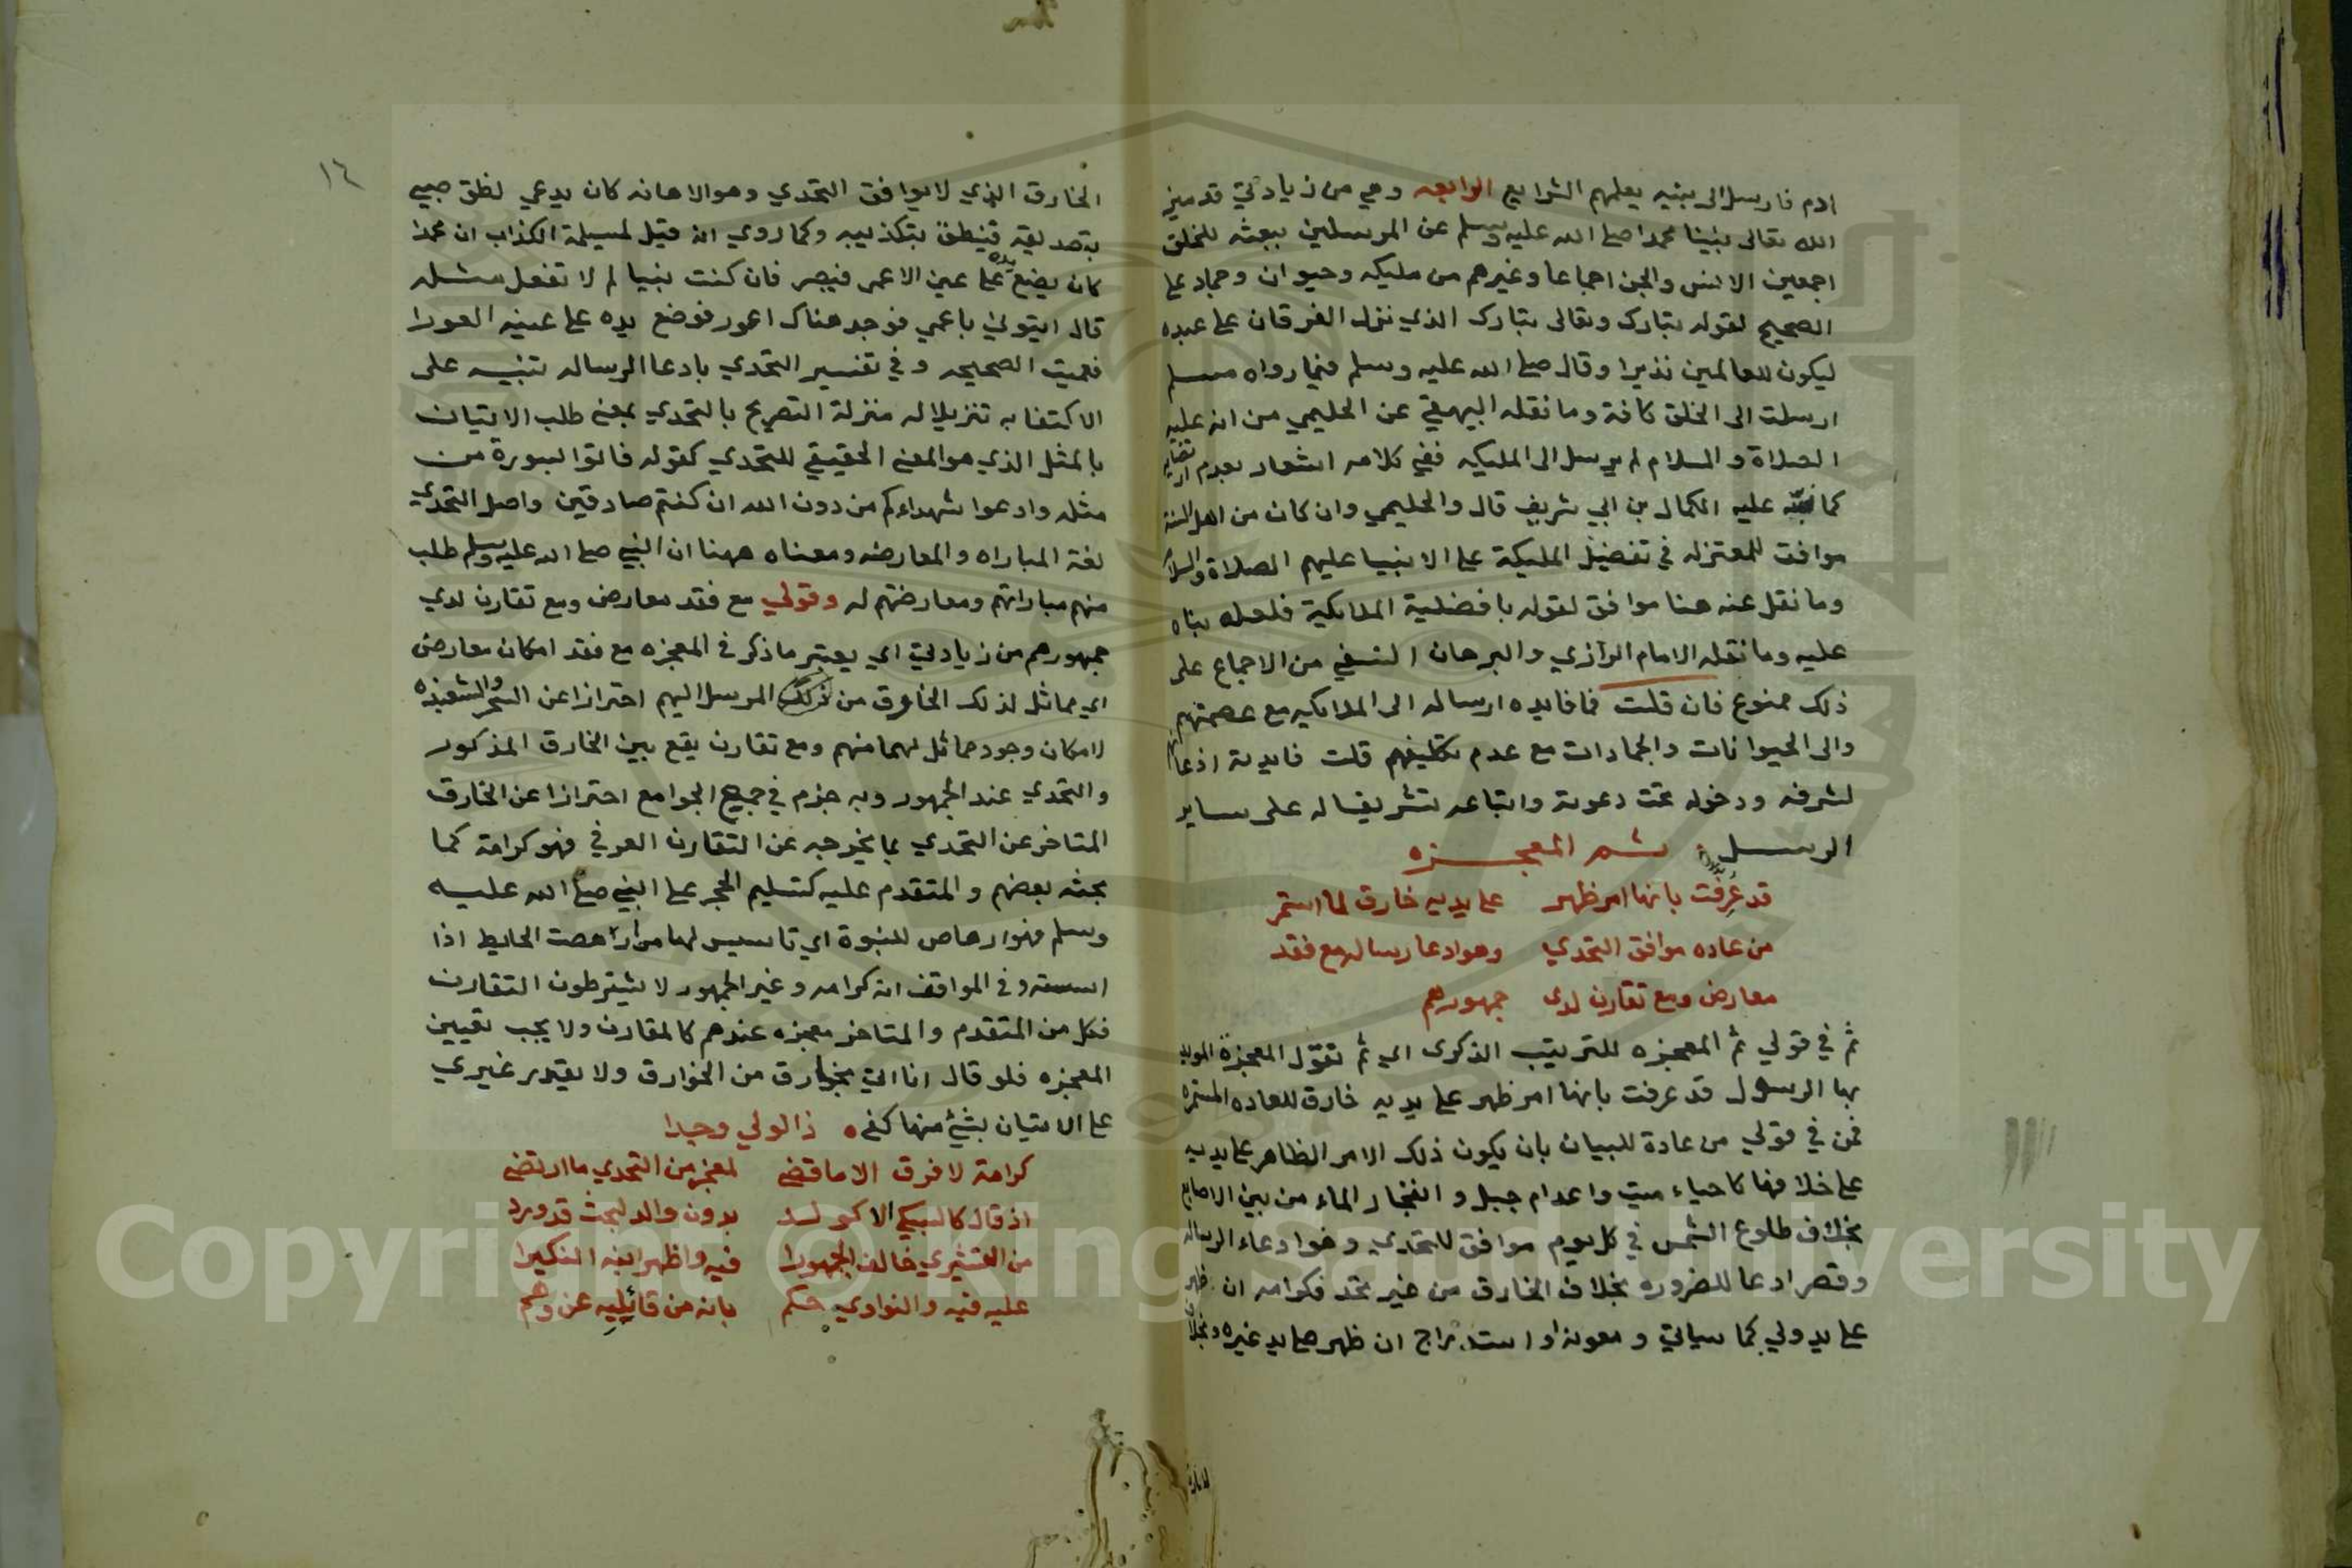 ادم فارسل الى بنيه يعلمهم الشرايع الرابعه وهي من زيادتي قد ميز
الله تعالى نبينا محمدا صلى الله عليه وسلم عن المرسلين ببعثه للخلق
اجمعين الانس والجن اجماعا وغيرهم من مليكه وحيوان وجماد على
الصحيح لقوله تبارك وتعالى تبارك الذي نزل الفرقان على عبده
ليكون للعالمين نذيرا وقال صلى الله عليه وسلم فيما رواه مسلم
ارسلت الى الخلق كافة وما نقله البيهقي عن الحليمي من انه عليه
الصلاة والسلام لم يرسل الى المليكه ففي كلامه اشعار بعدم ارتضايه
كما نبه عليه الكمال بن ابي شريف قال والحليمي وان كان من اهل السنة
موافق للمعتزله في تفضيل المليكة على الانبيا عليهم الصلاة والسلام
وما نقل عنه هنا موافق لقوله بافضلية الملايكة فلعله بناه
عليه وما نقله الامام الرازي والبرهان النسفي من الاجماع على
ذلك ممنوع فان قلت فما فايده ارساله الى الملايكه مع عصمتهم
والى الحيوانات والجمادات مع عدم تكليفهم قلت فايدته اذعانها
لشرفه ودخوله تحت دعوته واتباعه تشريفا له على ساير
الرسل ثم المعجزه
قد عرفت بانها امر ظهر على يديه خارق لما استمر
من عاده موافق التحدي وهو ادعا رساله مع فقد
معارض ومع تقارن لدى جمهورهم
ثم في قولي ثم المعجزه للترتيب الذكرى اي ثم نقول المعجزة المويد
بها الرسول قد عرفت بانها امر ظهر على يديه خارق للعاده المستمره
فمن في قولي من عادة للبيان بان يكون ذلك الامر الظاهر على يديه
على خلافها كاحياء ميت واعدام جبل وانفجار الماء من بين الاصابع
بخلاف طلوع الشمس في كل يوم موافق للتحدي وهو ادعاء الرساله
وقصر ادعا للضروره بخلاف الخارق من غير تحد فكرامه ان ظهر
على يد ولي كما سياتي ومعونه او استدراج ان ظهر على يد غيره وبخلاف
١٤
الخارق الذي لا يوافق التحدي وهو الاهانه كان يدعي نطق صبي
بتصديقه فينطق بتكذيبه وكما روي انه قيل لمسيلمة الكذاب ان محمدا
كان يضع يده على عين الاعمى فيبصر فان كنت نبيا لم لا تفعل مثله
قال ايتوني باعمي فوجد هناك اعور فوضع يده على عينه العورا
فعميت الصحيحه وفي تفسير التحدي بادعا الرساله تنبيه على
الاكتفا به تنزيلا له منزلة التصريح بالتحدي بمعنى طلب الاتيان
بالمثل الذي هو المعنى الحقيقي للتحدي كقوله فاتوا بسورة من
مثله وادعوا شهداءكم من دون الله ان كنتم صادقين واصل التحدي
لغة المباراه والمعارضه ومعناه ههنا ان النبي صلى الله عليه وسلم طلب
منهم مباراتهم ومعارضتهم له وقولي مع فقد معارض ومع تقارن لدي
جمهورهم من زيادتي اي يعتبر ما ذكر في المعجزه مع فقد امكان معارض
اي مماثل لذلك الخارق من ذلك المرسل اليهم احترازا عن السحر والشعبذه
لامكان وجود مماثل لهما منهم ومع تقارن يقع بين الخارق المذكور
والتحدي عند الجمهور وبه جزم في جميع الجوامع احترازا عن الخارق
المتاخر عن التحدي بما يخرجه عن التقارن العرفي فهو كرامة كما
بحثه بعضهم والمتقدم عليه كتسليم الحجر على النبي صلى الله عليه
وسلم فهو ارهاص للنبوة اي تاسيس لها من ارهصت الحايط اذا
اسسته وفي المواقف انه كرامه وغير الجمهور لا يشترطون التقارن
فكل من المتقدم والمتاخر معجزه عندهم كالمقارن ولا يجب تعيين
المعجزه فلو قال انا اتي بخارق من الخوارق ولا يقدر غيري
على الاتيان بشيء منها كفى ذا لولي وجدا
كرامة لا فرق الا ما قضى لمعجز من التحدي ما ارتضى
اذ قال كالسبكي الا كولد بدون والد لبحث قد ورد
من القشيري خالف الجمهورا فيه واظهر ابنه النكيرا
عليه فيه والنواوي حكم بانه من قائليه عن وهم